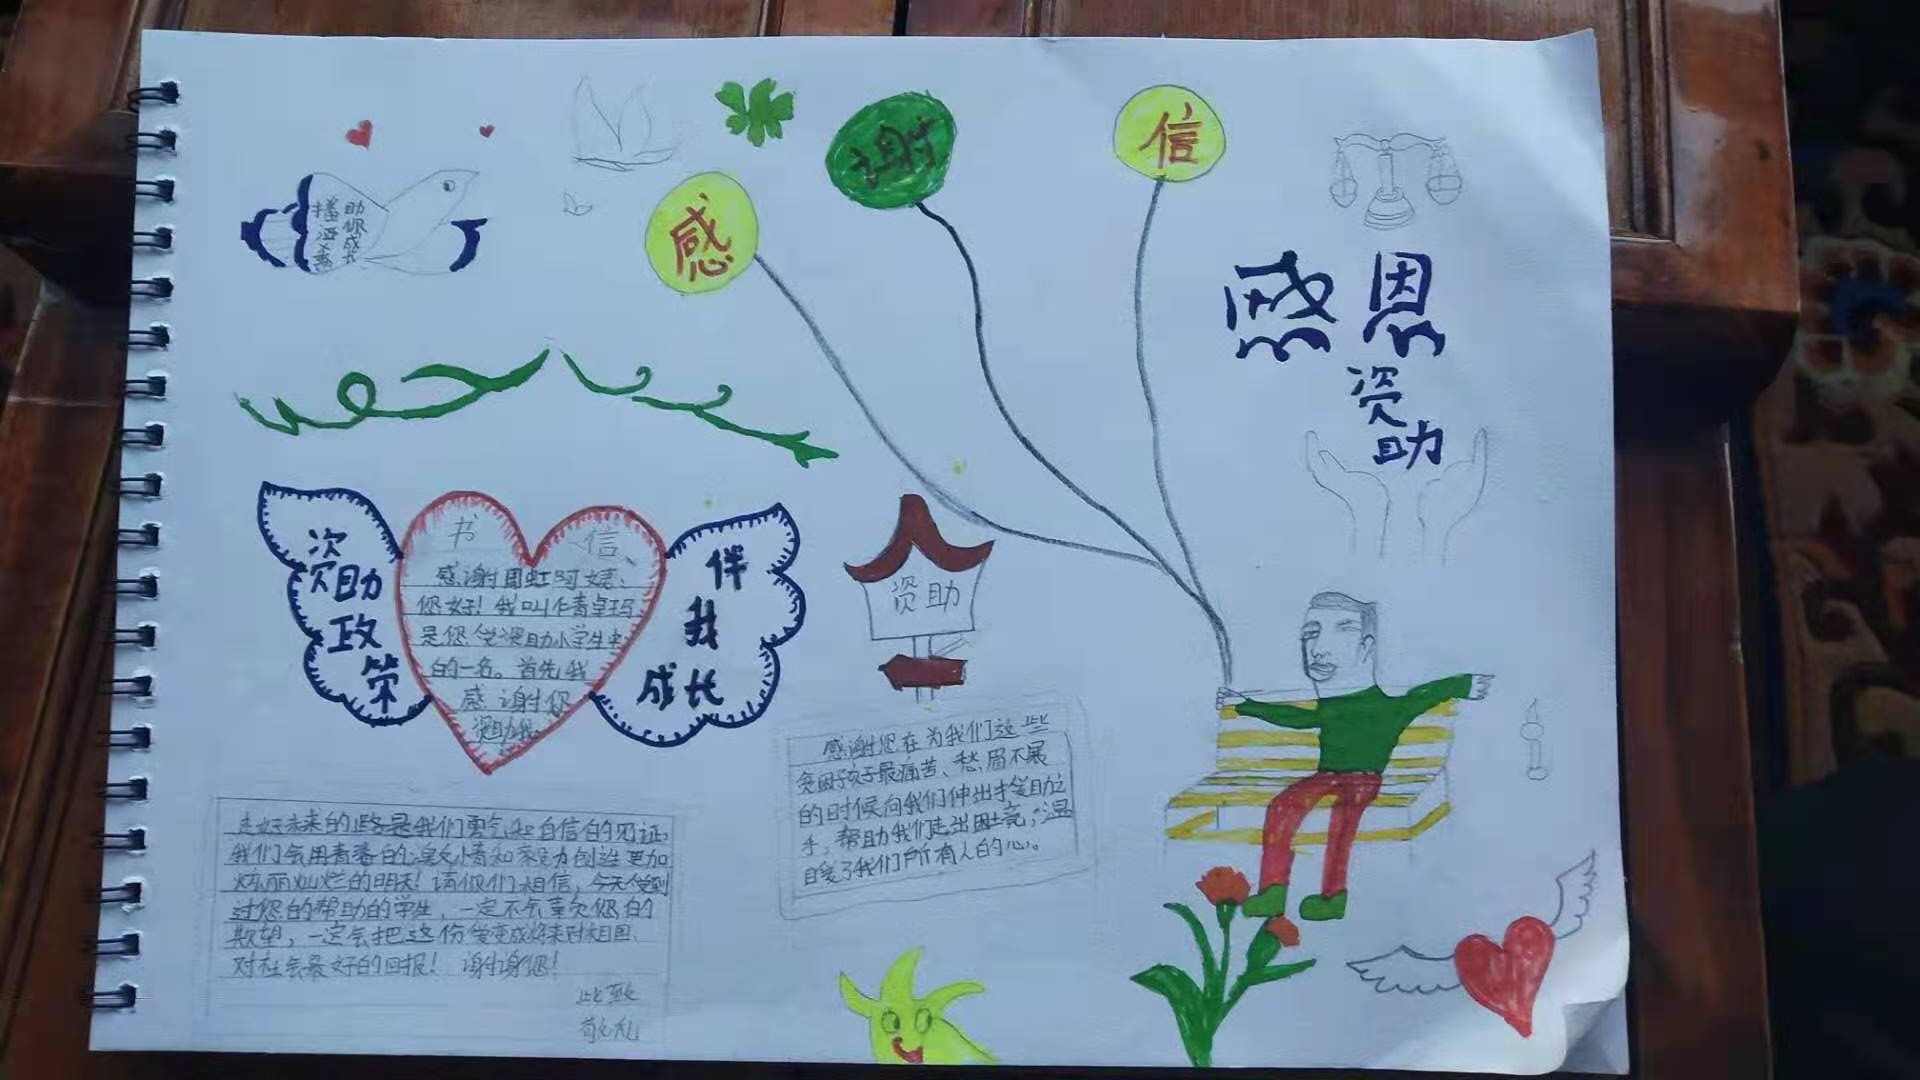 感
谢
信
播洒
助你成长
感恩
资助
资助
政
策
书信
感谢周虹阿姨、
您好！我叫仁青卓玛
是您 受资助小学生中
的一名。首先我
感谢您
资助我
伴
我
成长
资助
感谢您在为我们这些
贫困孩子最痛苦、愁眉不展
的时候向我们伸出援助之
手，帮助我们走出困境，温
暖了我们所有人的心。
走好未来的路是我们勇气和自信的见证，
我们会用青春的 和努力创造更加
炫丽灿烂的明天！请你们相信，今天受到
过您的帮助的学生，一定不会辜负您的
期望，一定会把这份爱变成将来对祖国、
对社会最好的回报！ 谢谢您！
此致
敬礼